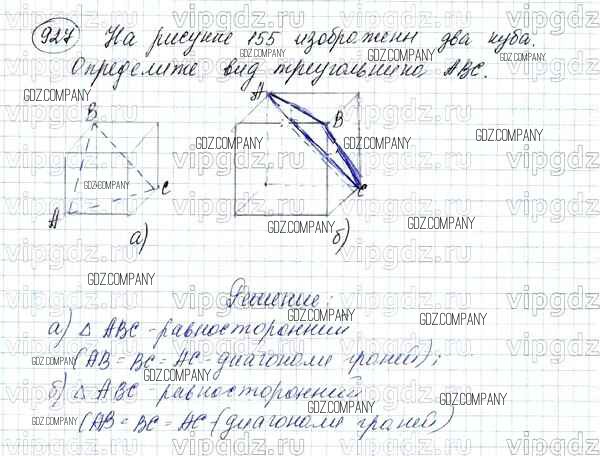 927 На рисунке 155 изображены два куба.
Определите вид треугольника ABC.
GDZ.COMPANY
vipgdz.ru
A
B
B
C
A
C
а)
б)
Решение:
а) △ ABC - равносторонний
(AB = BC = AC = диагонали граней);
б) △ ABC - равносторонний
(AB = BC = AC - (диагонали граней)